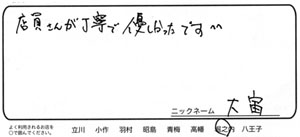 店員さんが丁寧で優しかったです^^
ニックネーム 大宙
よく利用されるお店を
○で囲んでください。 立川 小作 羽村 昭島 青梅 高幡 堀之内 八王子